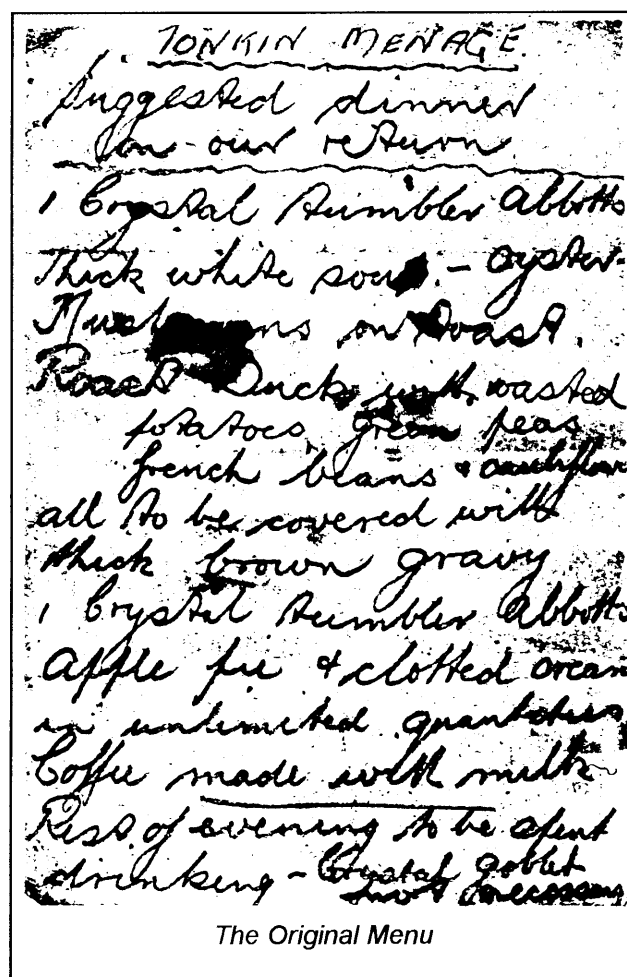 TONKIN MENAGE.
Suggested dinner
on our return.
1 Crystal tumbler Abbotts
Thick white soup. - oyster-
Mushrooms on toast.
Roast Duck with roasted
potatoes, green peas
french beans & cauliflower
all to be covered with
thick brown gravy
1 Crystal tumbler Abbotts
Apple pie & clotted cream
in unlimited quantities
Coffee made with milk
Rest of evening to be spent
drinking - Crystal goblet
not necessary
The Original Menu